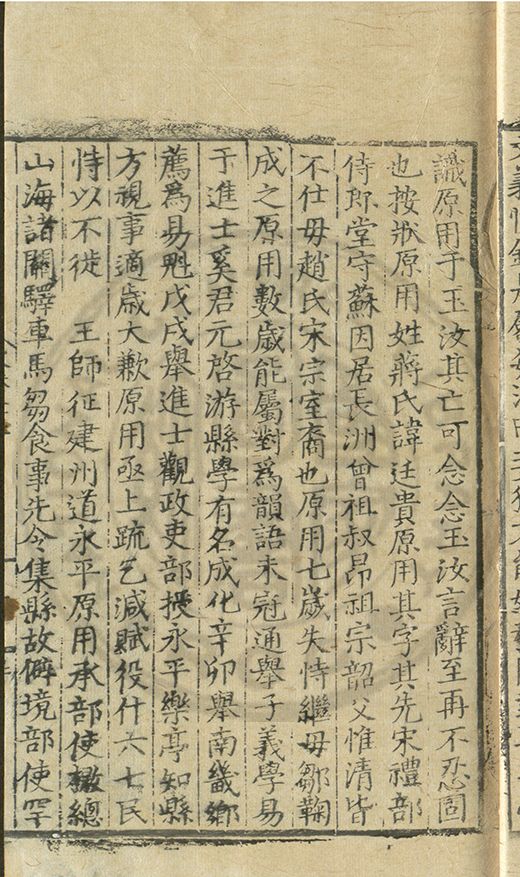 識原用于玉汝其亡可念念玉汝言辭至再不忍固
也按狀原用姓蔣氏諱廷貴原用其字其先宋禮部
侍郎堂守蘇因居長洲曾祖叔昂祖宗韶父惟清皆
不仕母趙氏宋宗室裔也原用七歲失恃繼母鄒鞠
成之原用數歲能屬對爲韻語未冠通舉子義學易
于進士奚君元啓游縣學有名成化辛卯舉南畿鄉
薦爲易魁戊戌舉進士觀政吏部授永平樂亭知縣
方視事適歲大歉原用亟上疏乞減賦役什六七民
恃以不徙　王師征建州道永平原用承部使檄總
山海諸關驛車馬芻食事先令集縣故僻境部使罕